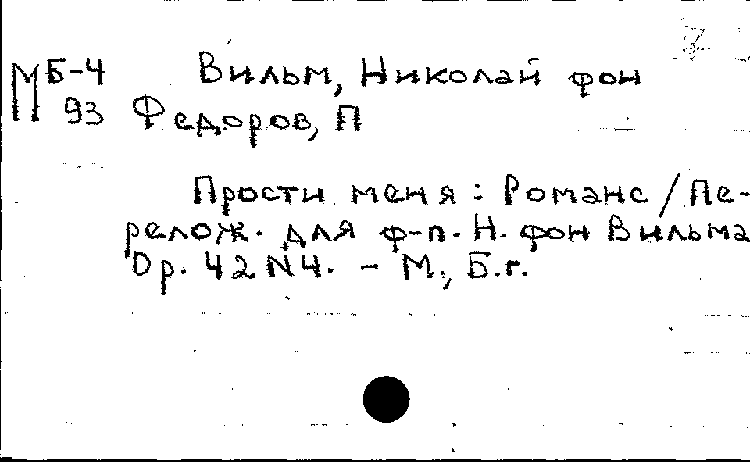 М Б-4 Вильм, Николай фон
93 Федоров, П
Прости меня : Романс / Пе-
релож. для ф-п. Н. фон Вильма
Op. 42 N4. - М., Б.г.